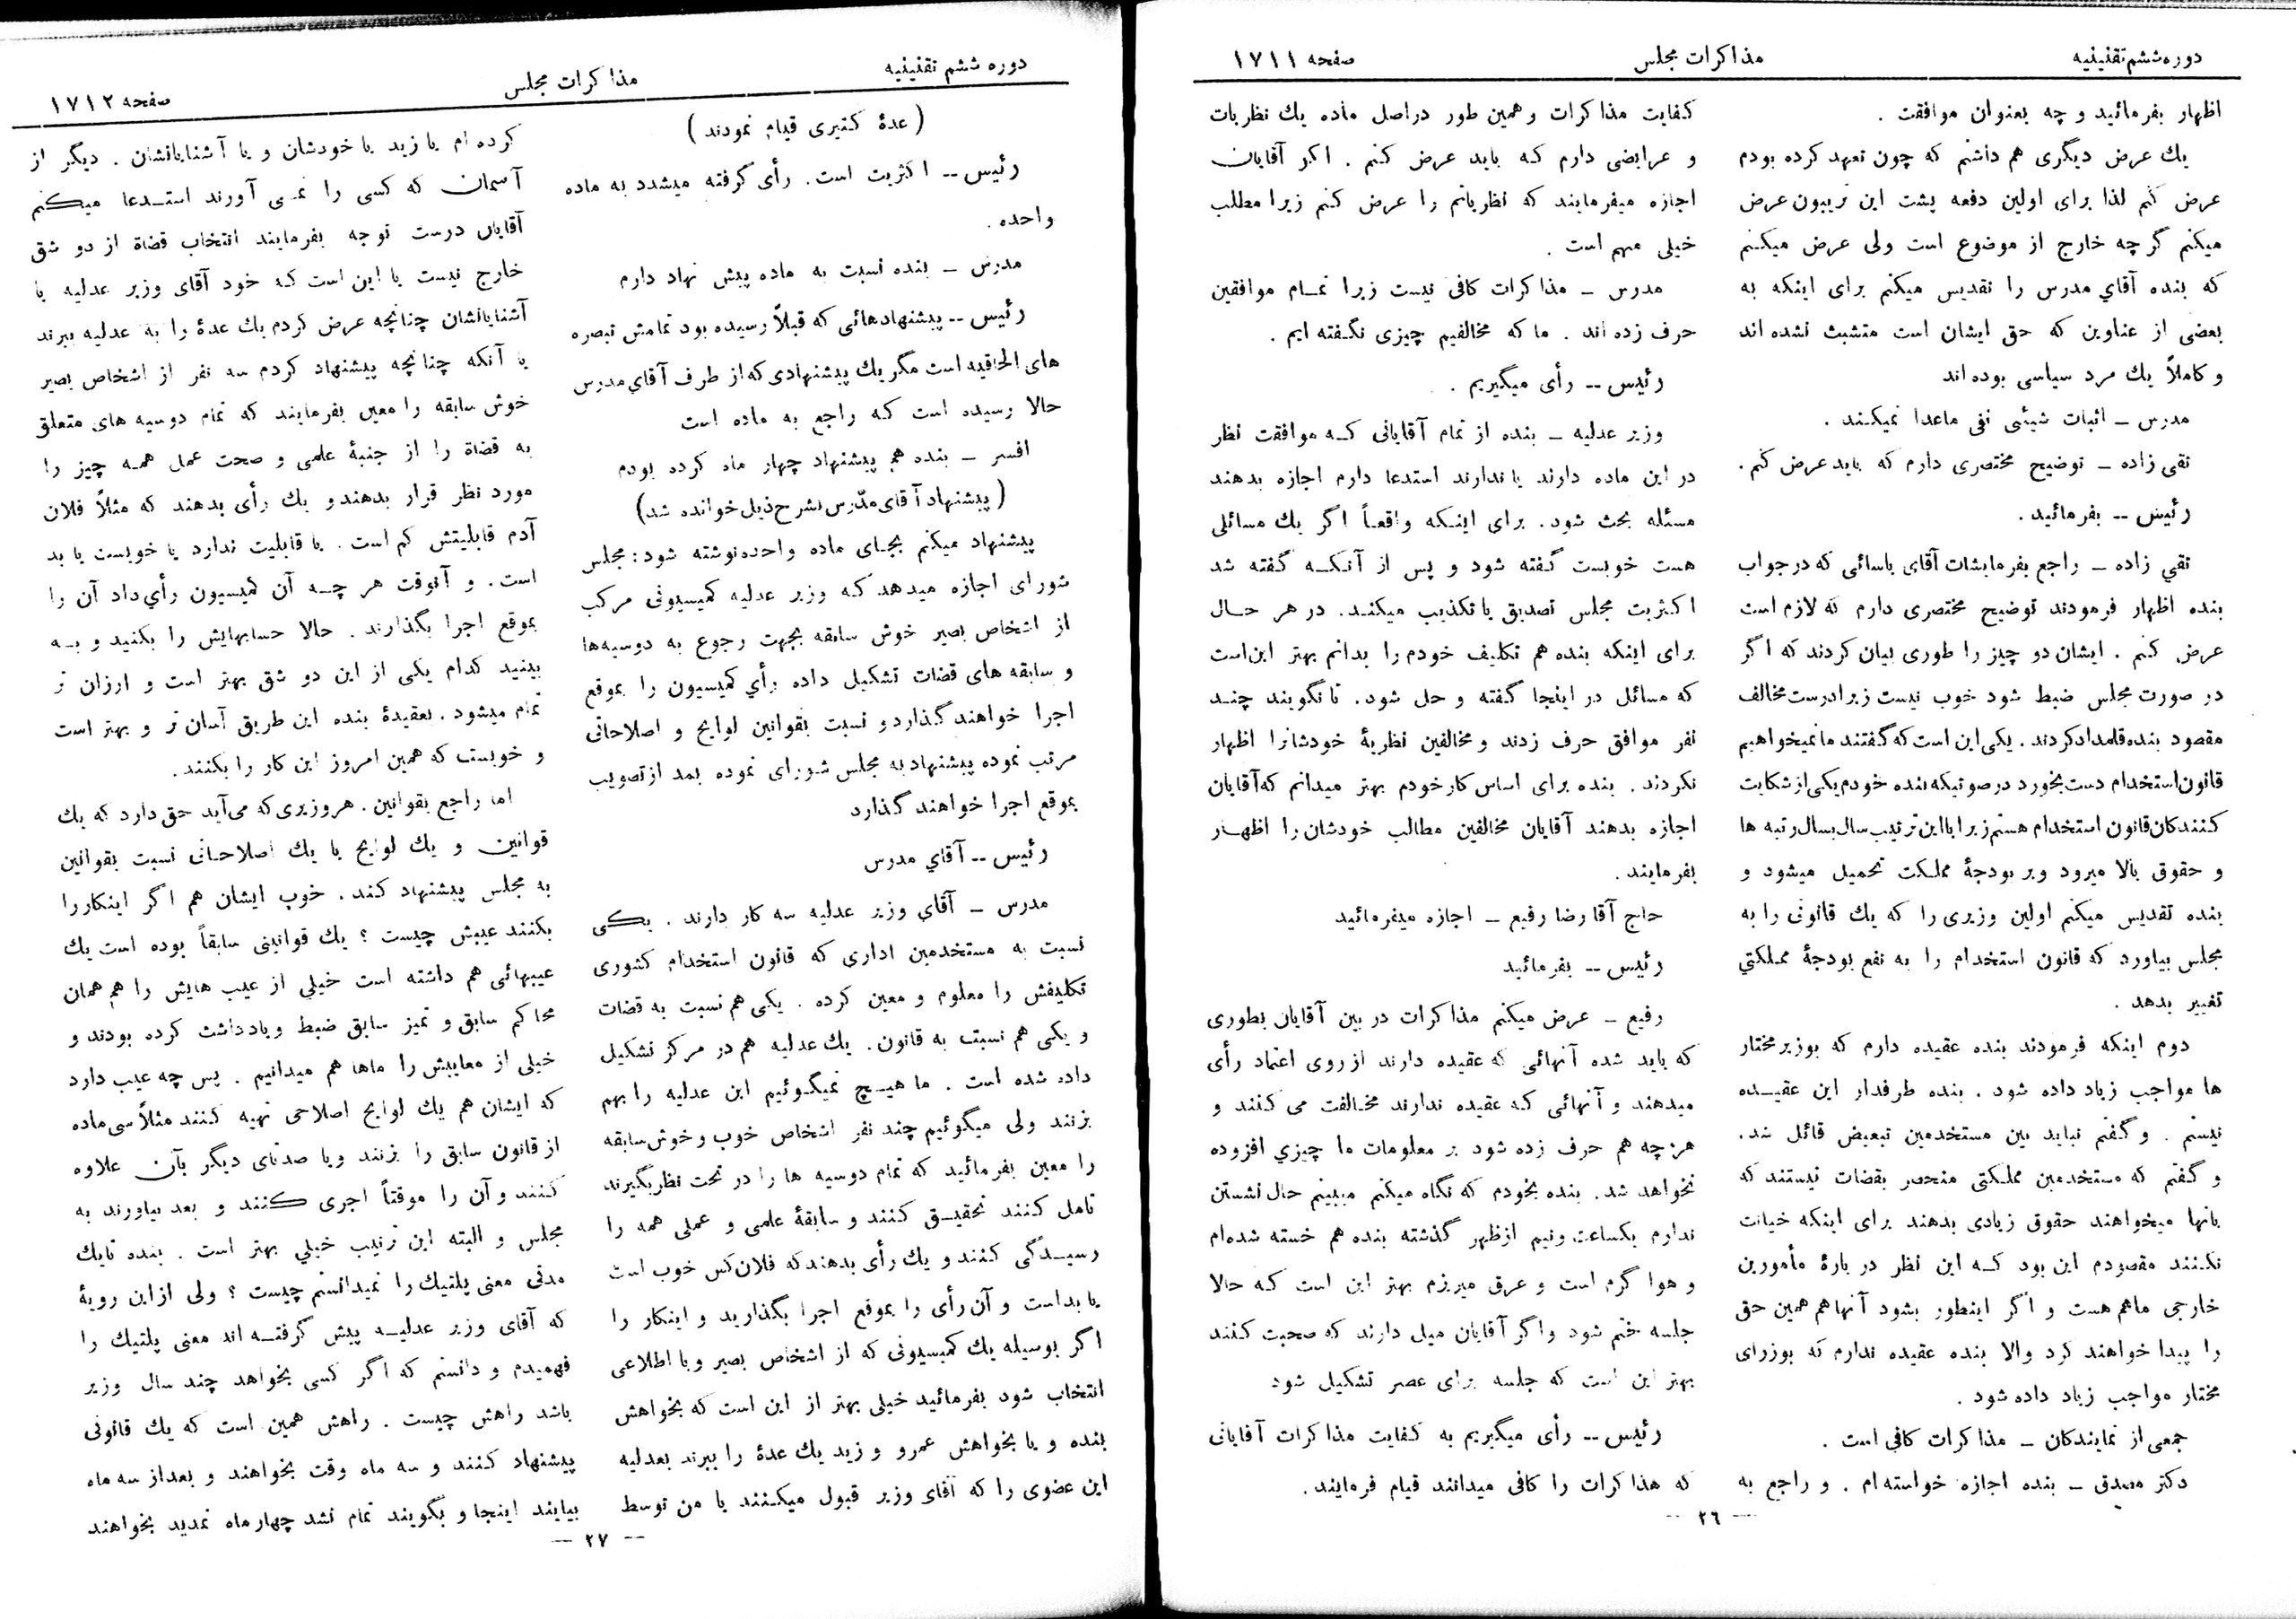 دوره ششم تقنینیه
مذاكرات مجلس
صفحه ۱۷۱۱
اظهار بفرمائید و چه بعنوان موافقت .
یك عرض دیگری هم داشتم كه چون تعهد كرده بودم
عرض كنم لذا برای اولین دفعه پشت این تریبون عرض
میكنم گر چه خارج از موضوع است ولی عرض میكنم
كه بنده آقای مدرس را تقدیس میكنم برای اینكه به
بعضی از عناوین كه حق ایشان است متشبث نشده اند
و كاملاً یك مرد سیاسی بوده اند
مدرس ـ اثبات شیئی نفی ماعدا نمیكند .
تقی زاده ـ توضیح مختصری دارم كه باید عرض كنم .
رئیس -- بفرمائید .
تقی زاده ـ راجع بفرمایشات آقای یاسائی كه در جواب
بنده اظهار فرمودند توضیح مختصری دارم كه لازم است
عرض كنم . ایشان دو چیز را طوری بیان كردند كه اگر
در صورت مجلس ضبط شود خوب نیست زیرا درست مخالف
مقصود بنده قلمداد كردند . یكی این است كه گفتند ما نمیخواهیم
قانون استخدام دست بخورد در صوتیكه بنده خودم یكی از شكایت
كنندكان قانون استخدام هستم زیرا با این ترتیب سال بسال رتبه ها
و حقوق بالا میرود و بر بودجهٔ مملكت تحمیل میشود و
بنده تقدیس میكنم اولین وزیری را كه یك قانونی را به
مجلس بیاورد كه قانون استخدام را به نفع بودجهٔ مملكتی
تغییر بدهد .
دوم اینكه فرمودند بنده عقیده دارم كه بوزیر مختار
ها مواجب زیاد داده شود . بنده طرفدار این عقیـده
نیستم . و گفتم نباید بین مستخدمین تبعیض قائل شد .
و گفتم كه مستخدمین مملكتی منحصر بقضات نیستند كه
بانها میخواهند حقوق زیادی بدهند برای اینكه خیانت
نكنند مقصودم این بود كـه این نظر در بارهٔ مأمورین
خارجی ماهم هست و اگر اینطور بشود آنها هم همین حق
را پیدا خواهند كرد والا بنده عقیده ندارم كه بوزرای
مختار مواجب زیاد داده شود .
جمعی از نمایندكان ـ مذاكرات كافی است .
دكتر مصدق ـ بنده اجازه خواسته ام . و راجع به
كفایت مذاكرات و همین طور در اصل ماده یك نظریات
و عرایضی دارم كـه باید عرض كنم . اكر آقایان
اجازه میفرمایند كه نظریاتم را عرض كنم زیرا مطلب
خیلی مهم است .
مدرس ـ مذاكرات كافی نیست زیرا تمـام موافقین
حرف زده اند . ما كه مخالفیم چیزی نگفته ایم .
رئیس -- رأی میگیریم .
وزیر عدلیه ـ بنده از تمام آقایانی كـه موافقت نظر
در این ماده دارند یا ندارند استدعا دارم اجازه بدهند
مسئله بحث شود . برای اینـكه واقعـاً اگر یك مسائلی
هست خوبست گفته شود و پس از آنكـه گفته شد
اكثریت مجلس تصدیق یا تكذیب میكند . در هر حـال
برای اینكه بنده هم تكلیف خودم را بدانم بهتر این است
كه مسائل در اینجا گفته و حل شود . تا نگویند چنـد
نفر موافق حرف زدند و مخالفین نظریهٔ خودشانرا اظهار
نكردند . بنده برای اساس كار خودم بهتر میدانم كه آقایان
اجازه بدهند آقایان مخالفین مطالب خودشان را اظهـار
بفرمایند .
حاج آقا رضا رفیع ـ اجازه میفرمائید
رئیس -- بفرمائید
رفیع ـ عرض میكنم مذاكرات در بین آقایان بطوری
كه باید شده آنهائی كه عقیده دارند از روی اعتماد رأی
میدهند و آنهائی كـه عقیده ندارند مخـالفت می كنند و
هر چه هم حرف زده شود بر معلومات ما چیزی افزوده
نخواهد شد . بنده بخودم كه نگاه میكنم میبینم حال نشستن
ندارم یكساعت ونیم ازظهر گذشته بنده هم خسته شده ام
و هوا گرم است و عرق میریزم بهتر این است كـه حالا
جلسه ختم شود و اگر آقایان میل دارند كه صحبت كنند
بهتر این است كه جلسه برای عصر تشكیل شود
رئیس -- رأی میگیریم به كفایت مذاكرات آقایانی
كه هذاكرات را كافی میدانند قیام فرمایند .
— ۲٦ —
دوره ششم تقنینیه
مذاكرات مجلس
صفحه ۱۷۱۲
( عدهٔ كثیری قیام نمودند )
رئیس -- اكثریت است . رأی گرفته میشدد به ماده
واحده .
مدرس ـ بنده نسبت به ماده پیش نهاد دارم
رئیس -- پیشنهادهائی كه قبلاً رسیده بود تمامش تبصره
های الحاقیه است مگر یك پیشنهادی كه از طرف آقای مدرس
حالا رسیده است كـه راجع به ماده است
افسر ـ بنده هم پیشنهاد چهار ماه كرده بودم
( پیشنهاد آقای مدّرس بشرح ذیل خوانده شد )
پیشنهاد میكنم بجـای ماده واحده نوشته شود : مجلس
شورای اجازه میدهد كـه وزیر عدلیه كمیسیونی مركب
از اشخاص بصیر خوش سابقه بجهت رجوع به دوسیه‌ها
و سابقه های قضات تشكیل داده رأی كمیسیون را بموقع
اجرا خواهند گذارد و نسبت بقوانین لوایح و اصلاحاتی
مرتب نموده پیشنهاد به مجلس شورای نموده بعد از تصویب
بموقع اجرا خواهند گذارد
رئیس -- آقای مدرس
مدرس ـ آقای وزیر عدلیه سه كار دارند . یـكی
نسبت به مستخدمین اداری كه قانون استخدام كشوری
تكلیفش را معلوم و معین كرده . یكی هم نسبت به قضات
و یكی هم نسبت به قانون . یك عدلیه هم در مركز تشكیل
داده شده است . ما هیـچ نمیگوئیم این عدلیه را بهم
بزنند ولی میگوئیم چند نفر اشخاص خوب و خوش سابقه
را معین بفرمائید كه تمام دوسیه ها را در تحت نظر بگیرند
تامل كنند تحقیـق كنند و سابقهٔ علمی و عملی همه را
رسیـدگی كنند و یك رأی بدهند كه فلان كس خوب است
یا بد است و آن رأی را بموقع اجرا بگذارید و اینكار را
اگر بوسیله یك كمیسیونی كه از اشخاص بصیر و با اطلاعی
انتخاب شود بفرمائید خیلی بهتر از این است كه بخواهش
بنده و یا بخواهش عمرو و زید یك عدهٔ را ببرند بعدلیه
این عضوی را كه آقای وزیر قبول میكنند یا من توسط
كرده ام یا زید یا خودشان و یا آشنایانشان . دیگر از
آسمان كه كسی را نمـی آورند استـدعا میكنم
آقایان درست توجه بفرمایند انتخاب قضاة از دو شق
خارج نیست یا این است كـه خود آقای وزیر عدلیه یا
آشنایانشان چنانچه عرض كردم یك عدهٔ را به عدلیه ببرند
یا آنكه چنانچه پیشنهاد كردم سه نفر از اشخاص بصیر
خوش سابقه را معین بفرمایند كه تمام دوسیه های متعلق
به قضاة را از جنبهٔ علمی و صحت عمل همـه چیز را
مورد نظر قرار بدهند و یك رأی بدهند كه مثلاً فلان
آدم قابلیتش كم است . یا قابلیت ندارد یا خوبست یا بد
است . و آنوقت هر چـه آن كمیسیون رأی داد آن را
بموقع اجرا بگذارند . حالا حسابهایش را بكنید و بـه
بینید كدام یكی از این دو شق بهتر است و ارزان تر
تمام میشود . بعقیدهٔ بنده این طریق آسان تر و بهتر است
و خوبست كه همین امروز این كار را بكنند .
اما راجع بقوانین . هر وزیری كه می‌آید حق دارد كه یك
قوانین و یك لوایح یا یك اصلاحـاتی نسبت بقوانین
به مجلس پیشنهاد كند . خوب ایشان هم اگر اینكار را
بكنند عیبش چیست ؟ یك قوانینی سابقاً بوده است یك
عیبهائی هم داشته است خیلی از عیب هایش را هم همان
محاكم سابق و تمیز سابق ضبط و یادداشت كرده بودند و
خیلی از معایبش را ماها هم میدانیم . پس چه عیب دارد
كه ایشان هم یك لوایح اصلاحی تهیه كنند مثلاً سی ماده
از قانون سابق را بزنند و یا صدتای دیگر بآن علاوه
كنند و آن را موقتاً اجری كنند و بعد بیاورند به
مجلس و البته این ترتیب خیلی بهتر است . بنده تا یك
مدتی معنی پلتیك را نمیدانستم چیست ؟ ولی از این رویهٔ
كه آقای وزیر عدلیـه پیش گرفتـه اند معنی پلتیك را
فهمیدم و دانستم كه اگر كسی بخواهد چند سال وزیر
باشد راهش چیست . راهش همین است كه یك قانونی
پیشنهاد كنند و سه ماه وقت بخواهند و بعد از سه ماه
بیایند اینجا و بگویند تمام نشد چهار ماه تمدید بخواهند
— ۲۷ —